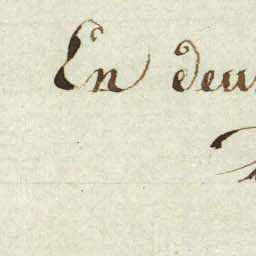 En deu